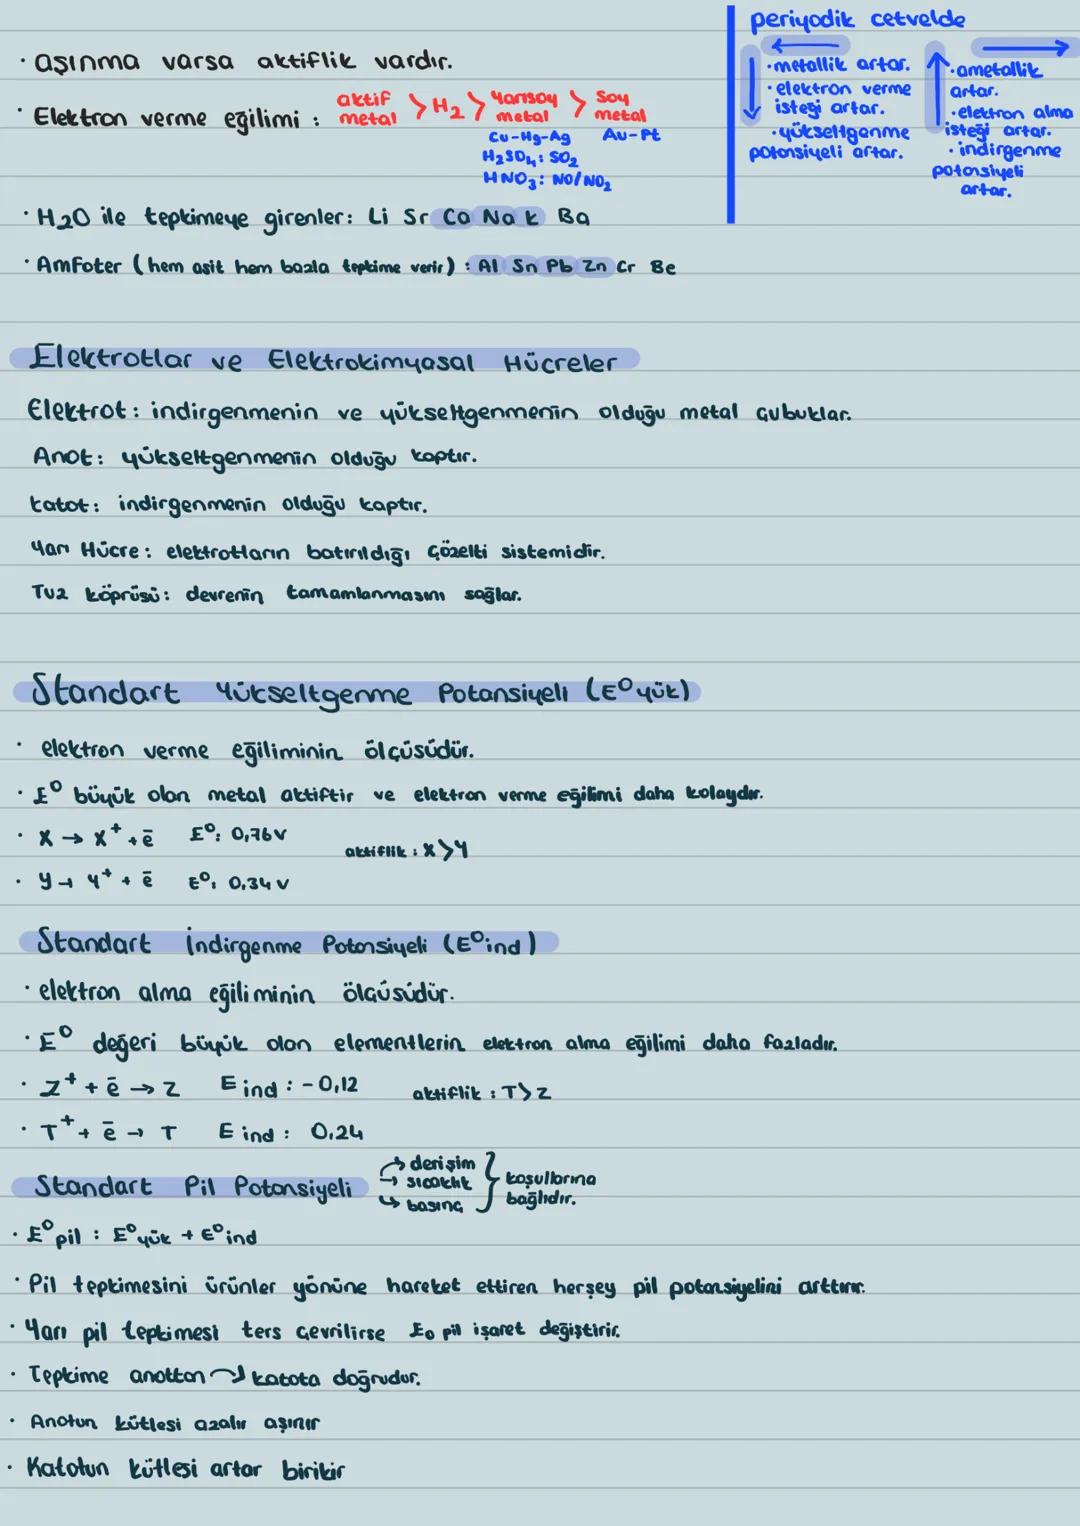 periyodik cetvelde
· metallik artar.
· elektron verme
isteği artar.
· yükseltgenme
potansiyeli artar.
· ametallik
artar.
· elektron alma
isteği artar.
· indirgenme
potansiyeli
artar.
· aşınma varsa aktiflik vardır.
· Elektron verme eğilimi : aktif metal > H2 > Yarısoy metal > Soy metal
Cu-Hg-Ag Au-Pt
H2SO4: SO2
HNO3: NO/NO2
· H2O ile tepkimeye girenler: Li Sr Ca Na K Ba
· Amfoter (hem asit hem bazla tepkime verir) : Al Sn Pb Zn Cr Be
Elektrotlar ve Elektrokimyasal Hücreler
Elektrot: indirgenmenin ve yükseltgenmenin olduğu metal çubuklar.
Anot: yükseltgenmenin olduğu kaptır.
Katot: indirgenmenin olduğu kaptır.
Yarı Hücre: elektrotların batırıldığı çözelti sistemidir.
Tuz köprüsü: devrenin tamamlanmasını sağlar.
Standart Yükseltgenme Potansiyeli (E⁰yük)
· elektron verme eğiliminin ölçüsüdür.
· E⁰ büyük olan metal aktiftir ve elektron verme eğilimi daha kolaydır.
· X → X⁺ + ē E⁰: 0,76V
aktiflik : X>Y
· Y → Y⁺ + ē E⁰: 0,34 V
Standart İndirgenme Potansiyeli (E⁰ind)
· elektron alma eğiliminin ölçüsüdür.
· E⁰ değeri büyük olan elementlerin elektron alma eğilimi daha fazladır.
· Z⁺ + ē → Z E ind : -0,12 aktiflik : T>Z
· T⁺ + ē → T E ind : 0,24
Standart Pil Potansiyeli → derişim → sıcaklık → basınç } koşullarına bağlıdır.
· E⁰pil : E⁰yük + E⁰ind
· Pil tepkimesini ürünler yönüne hareket ettiren herşey pil potansiyelini arttırır.
· Yarı pil tepkimesi ters çevrilirse E₀ pil işaret değiştirir.
· Tepkime anottan → katota doğrudur.
· Anotun kütlesi azalır aşınır
· Katotun kütlesi artar birikir